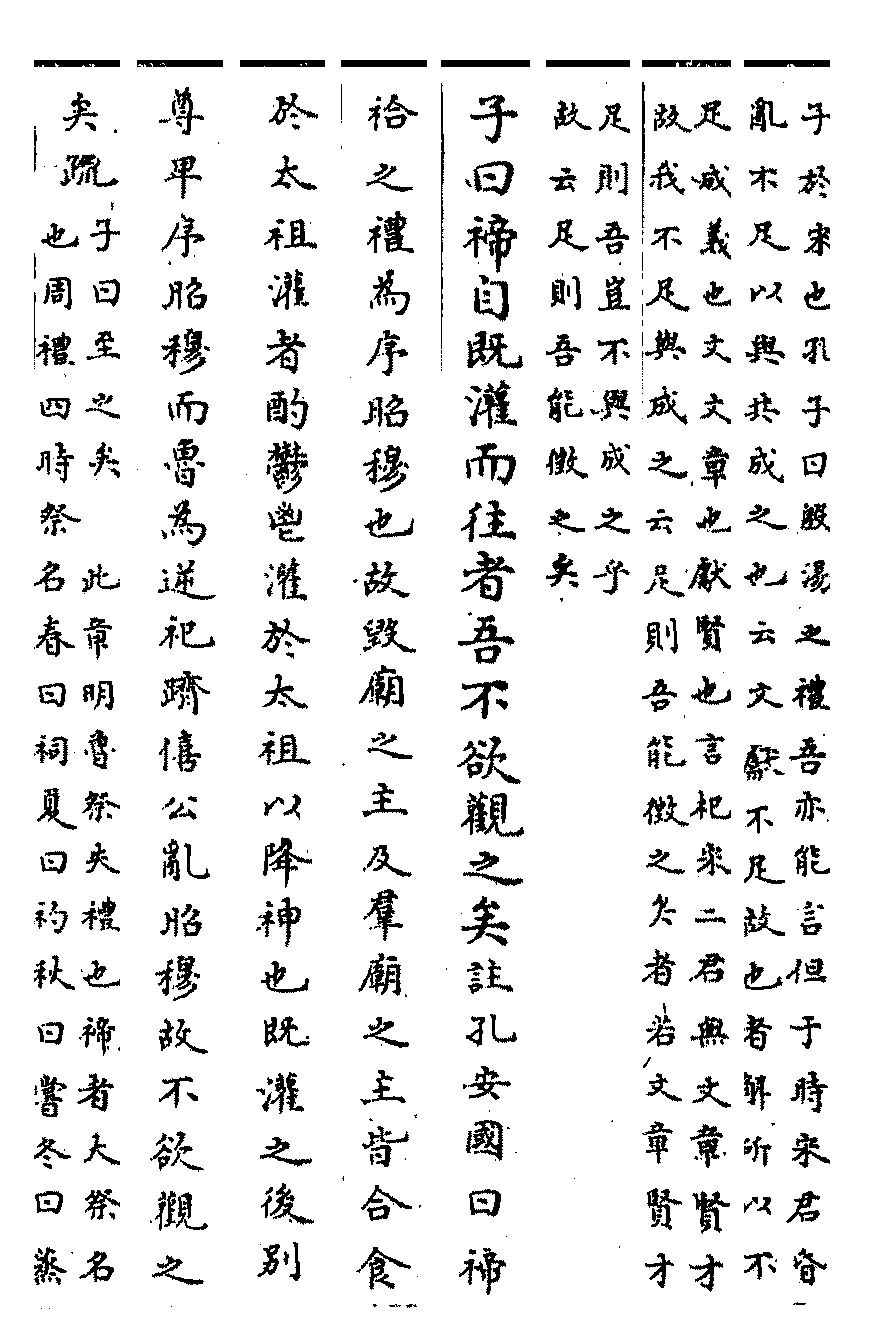 子於宋也孔子曰殷湯之禮吾亦能言但于時宋君昏
亂不足以與共成之也云文獻不足故也者解所以不
足成義也文文章也獻賢也言杞宋二君無文章賢才
故我不足與成之云足則吾能徵之矣者若文章賢才
足則吾豈不與成之乎
故云足則吾能徵之矣
子曰禘自既灌而往者吾不欲觀之矣註孔安國曰禘
祫之禮為序昭穆也故毀廟之主及羣廟之主皆合食
於太祖灌者酌鬱鬯灌於太祖以降神也既灌之後別
尊卑序昭穆而魯為逆祀躋僖公亂昭穆故不欲觀之
矣疏
子曰至之矣 此章明魯祭失禮也禘者大祭名
也周禮四時祭名春曰祠夏曰礿秋曰嘗冬曰蒸